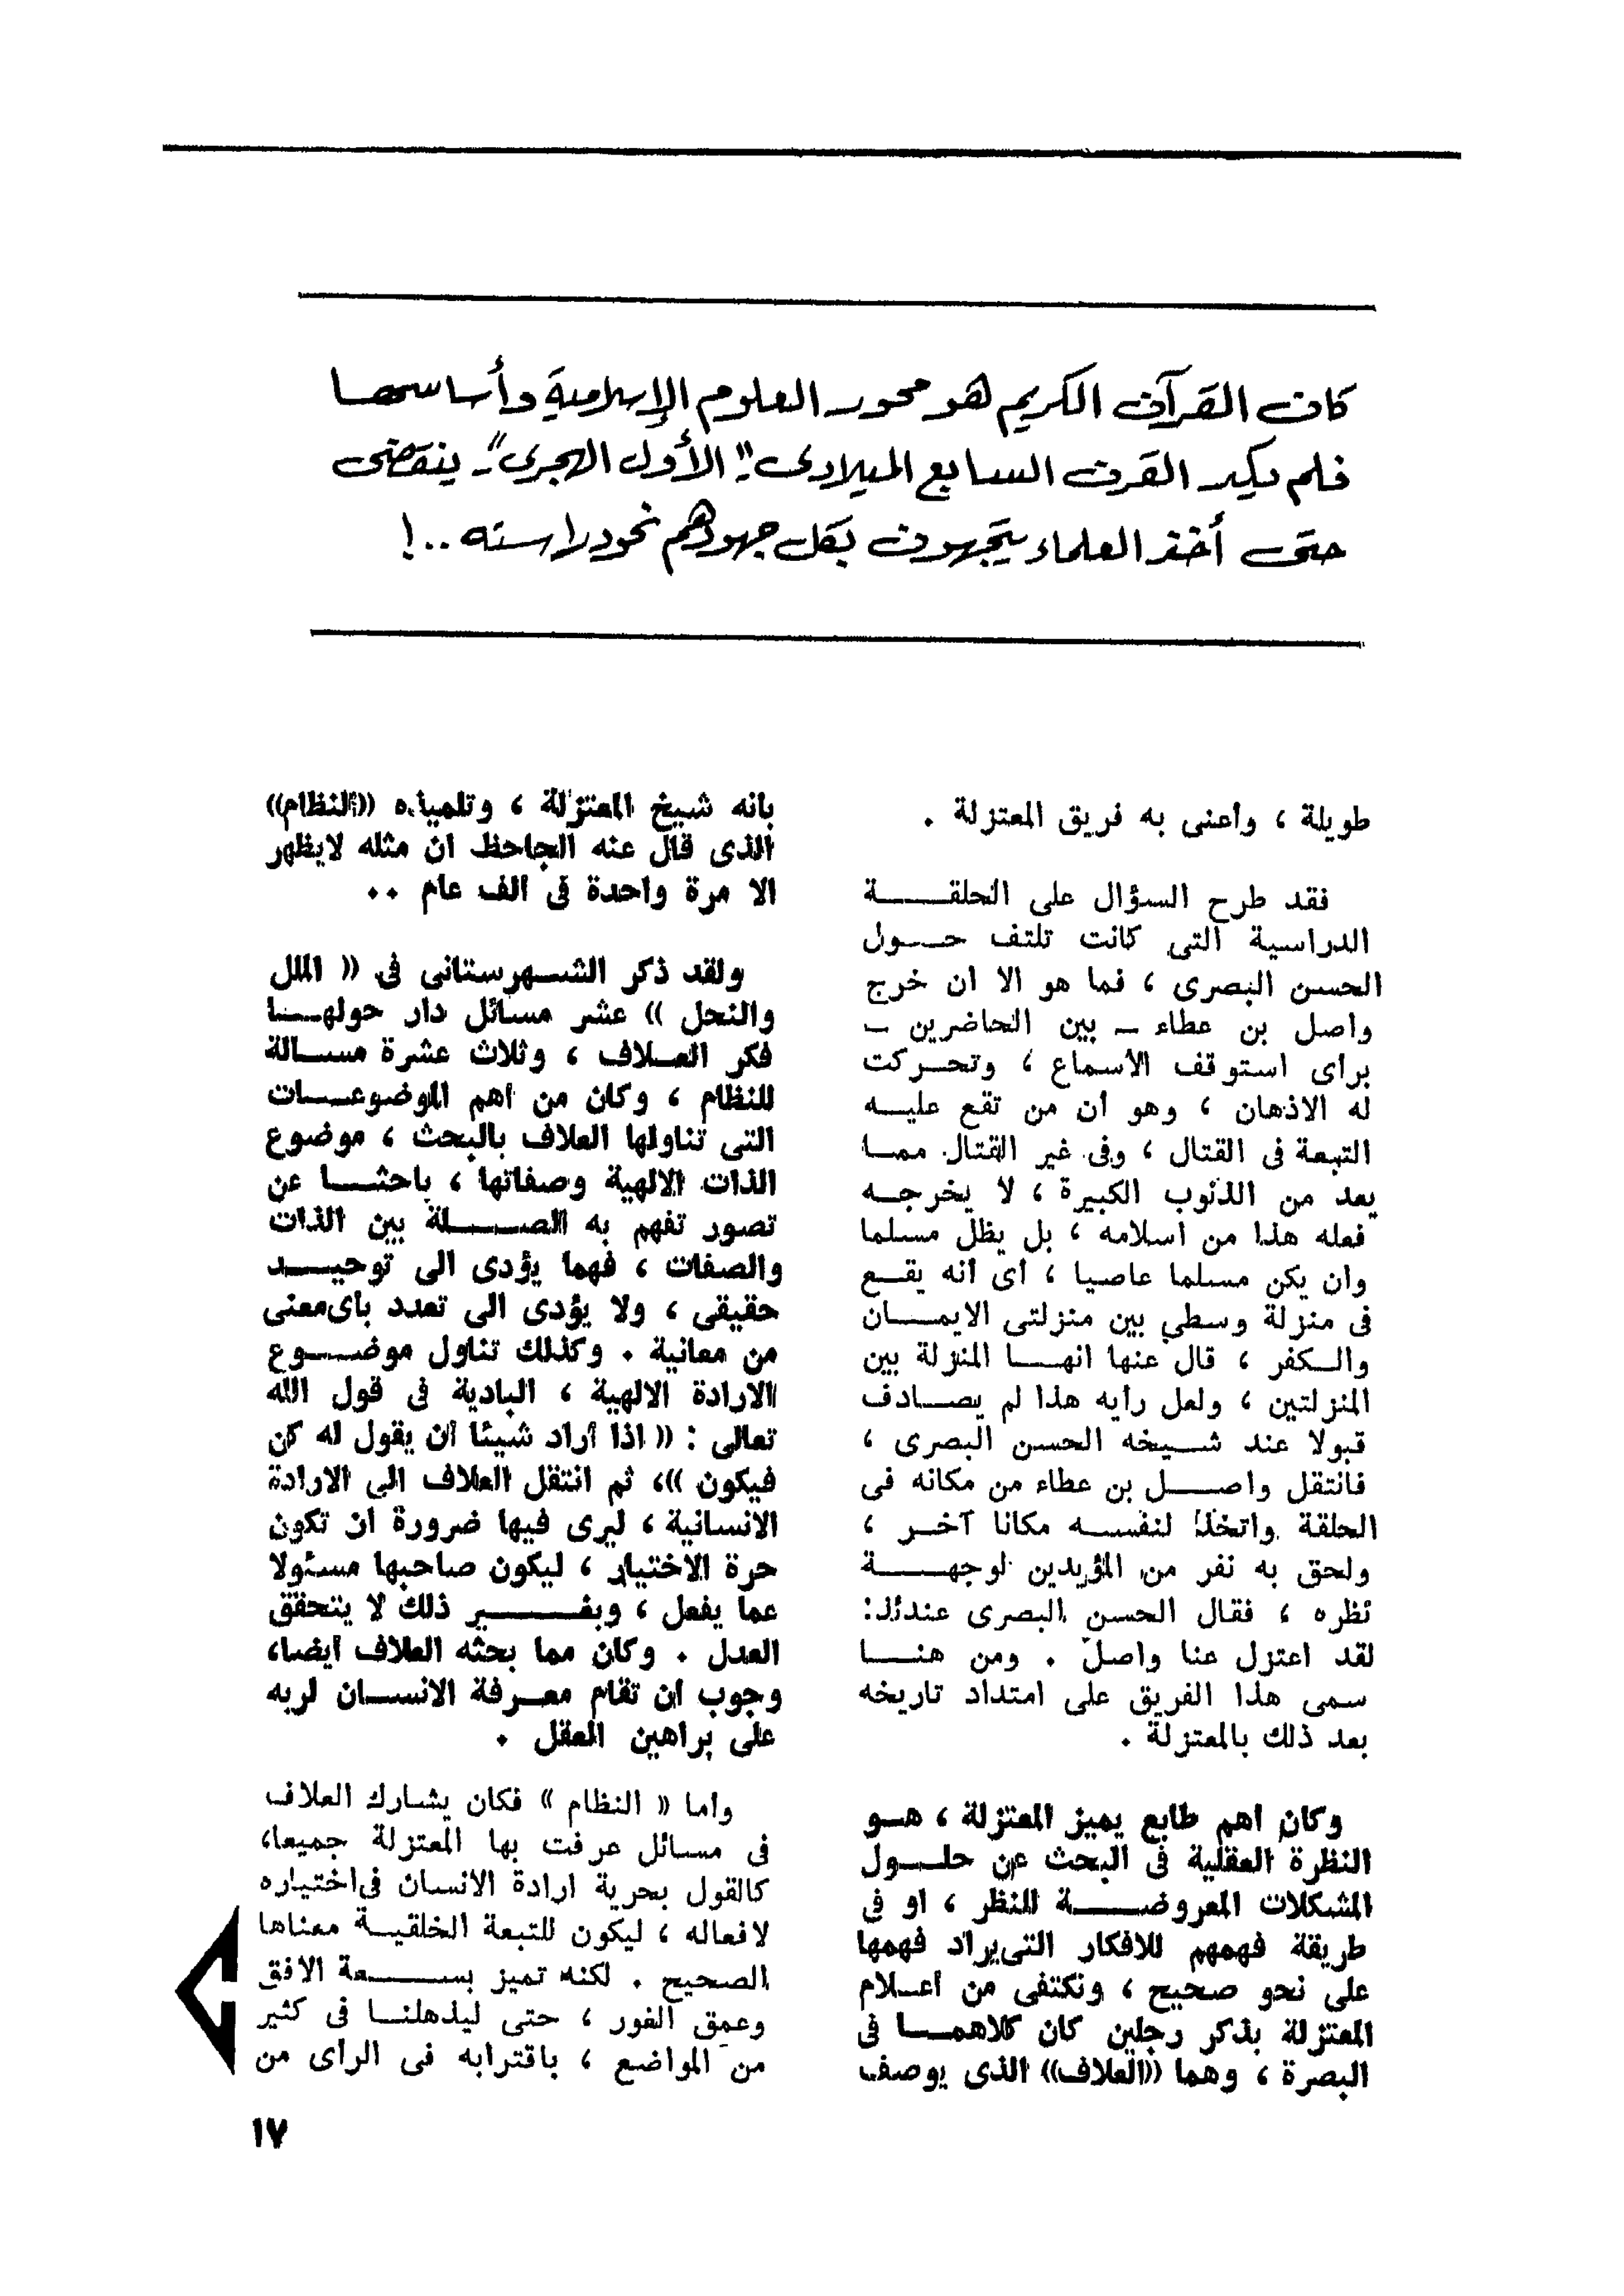 كان القرآن الكريم هو محور العلوم الإسلامية وأساسها
فلم يكد القرن السابع الميلادى "الأول الهجرى" ينقضى
حتى أخذ العلماء يتجهون بكل جهودهم نحو دراسته ..!
طويلة ، وأعنى به فريق المعتزلة .
فقد طرح السؤال على الحلقة
الدراسية التى كانت تلتف حول
الحسن البصرى ، فما هو الا ان خرج
واصل بن عطاء - بين الحاضرين -
برأى استوقف الأسماع ، وتحركت
له الاذهان ، وهو أن من تقع عليه
التبعة فى القتال ، وفى غير القتال مما
يعد من الذنوب الكبيرة ، لا يخرجه
فعله هذا من اسلامه ، بل يظل مسلما
وان يكن مسلما عاصيا ، أى أنه يقع
فى منزلة وسطى بين منزلتى الايمان
والكفر ، قال عنها انها المنزلة بين
المنزلتين ، ولعل رأيه هذا لم يصادف
قبولا عند شيخه الحسن البصرى ،
فانتقل واصل بن عطاء من مكانه فى
الحلقة واتخذ لنفسه مكانا آخر ،
ولحق به نفر من المؤيدين لوجهة
نظره ، فقال الحسن البصرى عندئذ:
لقد اعتزل عنا واصل . ومن هنا
سمى هذا الفريق على امتداد تاريخه
بعد ذلك بالمعتزلة .
وكان اهم طابع يميز المعتزلة ، هو
النظرة العقلية فى البحث عن حلول
المشكلات المعروضة للنظر ، او فى
طريقة فهمهم للافكار التى يراد فهمها
على نحو صحيح ، ونكتفى من أعلام
المعتزلة بذكر رجلين كان كلاهما فى
البصرة ، وهما ((العلاف)) الذى يوصف
بانه شيخ المعتزلة ، وتلميذه ((النظام))
الذى قال عنه الجاحظ ان مثله لايظهر
الا مرة واحدة فى الف عام ..
ولقد ذكر الشهرستانى فى (( الملل
والنحل )) عشر مسائل دار حولها
فكر العلاف ، وثلاث عشرة مسالة
للنظام ، وكان من اهم الموضوعات
التى تناولها العلاف بالبحث ، موضوع
الذات الالهية وصفاتها ، باحثا عن
تصور تفهم به الصلة بين الذات
والصفات ، فهما يؤدى الى توحيد
حقيقى ، ولا يؤدى الى تعدد بأى معنى
من معانية . وكذلك تناول موضوع
الارادة الالهية ، البادية فى قول الله
تعالى : (( اذا أراد شيئا أن يقول له كن
فيكون ))، ثم انتقل العلاف الى الارادة
الانسانية ، ليرى فيها ضرورة ان تكون
حرة الاختيار ، ليكون صاحبها مسئولا
عما يفعل ، وبغير ذلك لا يتحقق
العدل . وكان مما بحثه العلاف ايضا،
وجوب ان تقام معرفة الانسان لربه
على براهين العقل .
واما (( النظام )) فكان يشارك العلاف
فى مسائل عرفت بها المعتزلة جميعا،
كالقول بحرية ارادة الانسان فى اختياره
لافعاله ، ليكون للتبعة الخلقية معناها
الصحيح . لكنه تميز بسعة الافق
وعمق الغور ، حتى ليذهلنا فى كثير
من المواضع ، باقترابه فى الرأى من
١٧